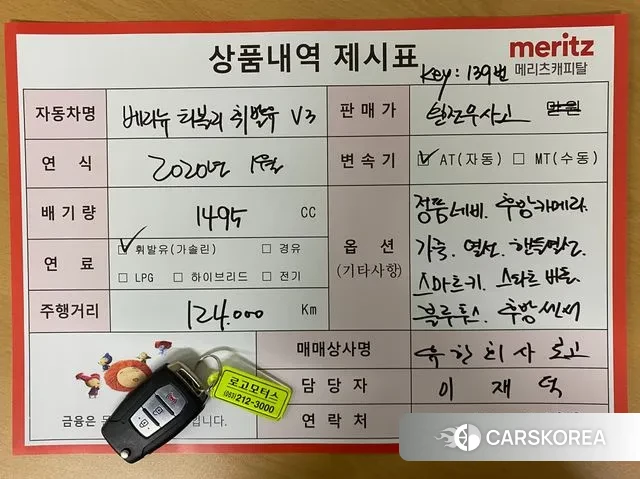 상품내역 제시표
meritz
메리츠캐피탈
Key : 139번
자동차명 베리뉴 티볼리 휘발유 V3
판매가 완전무사고
연식 2020년 1월
변속기 ☑ AT(자동) ☐ MT(수동)
배기량 1495 CC
연료 ☑ 휘발유(가솔린) ☐ 경유
☐ LPG ☐ 하이브리드 ☐ 전기
옵션
(기타사항)
정품네비. 후방카메라.
가죽. 열선. 핸들열선.
스마트키. 스타트 버튼.
블루투스. 후방센서
주행거리 124.000 Km
매매상사명 유한회사 로고
담당자 이재덕
연락처
금융은
입니다.
로고모터스
(063)212-3000
CARSKOREA